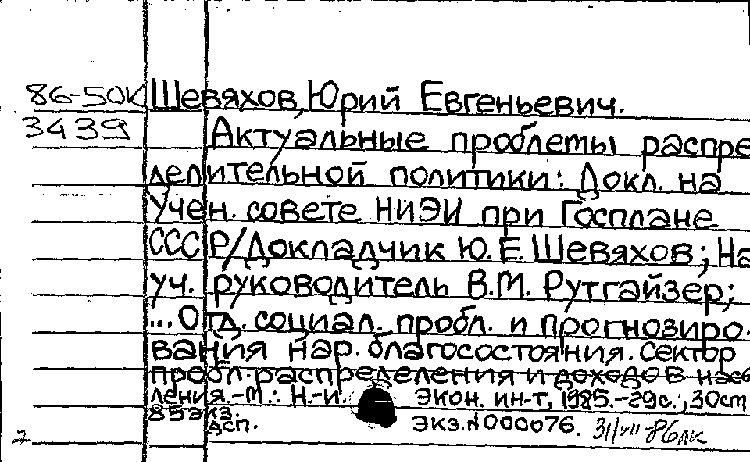 86-50К Шевяхов, Юрий Евгеньевич.
3439 Актуальные проблемы распре
делительной политики: Докл. на
Учен. совете НИЭИ при Госплане
СССР/Докладчик Ю.Е. Шевяхов; На
уч. руководитель В.М. Рутгайзер;
...Отд. социал. пробл. и прогнозиро-
вания нар. благосостояния. Сектор
пробл. распределения и доходов насе
ления.-М.: Н.-и. экон. ин-т, 1985.-29с.; 30см
85экз.
ДСП. Экз. N 000076. 31/VII 86
2